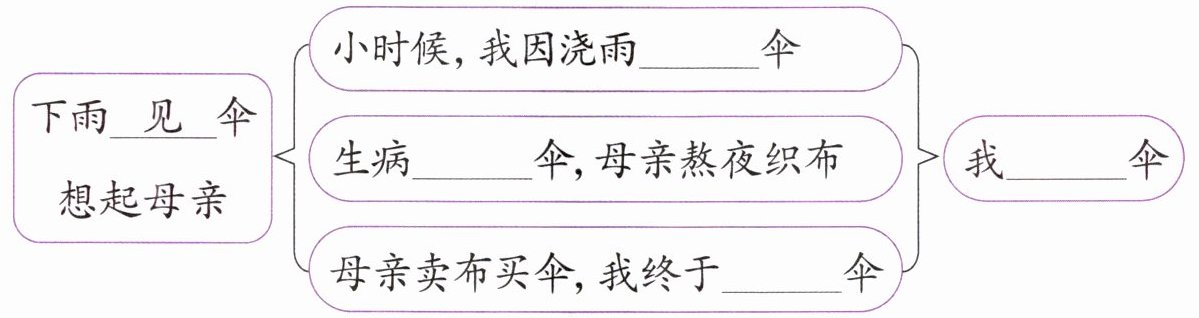 下雨 见 伞
想起母亲
小时候,我因浇雨______伞
生病______伞,母亲熬夜织布
母亲卖布买伞,我终于______伞
我______伞